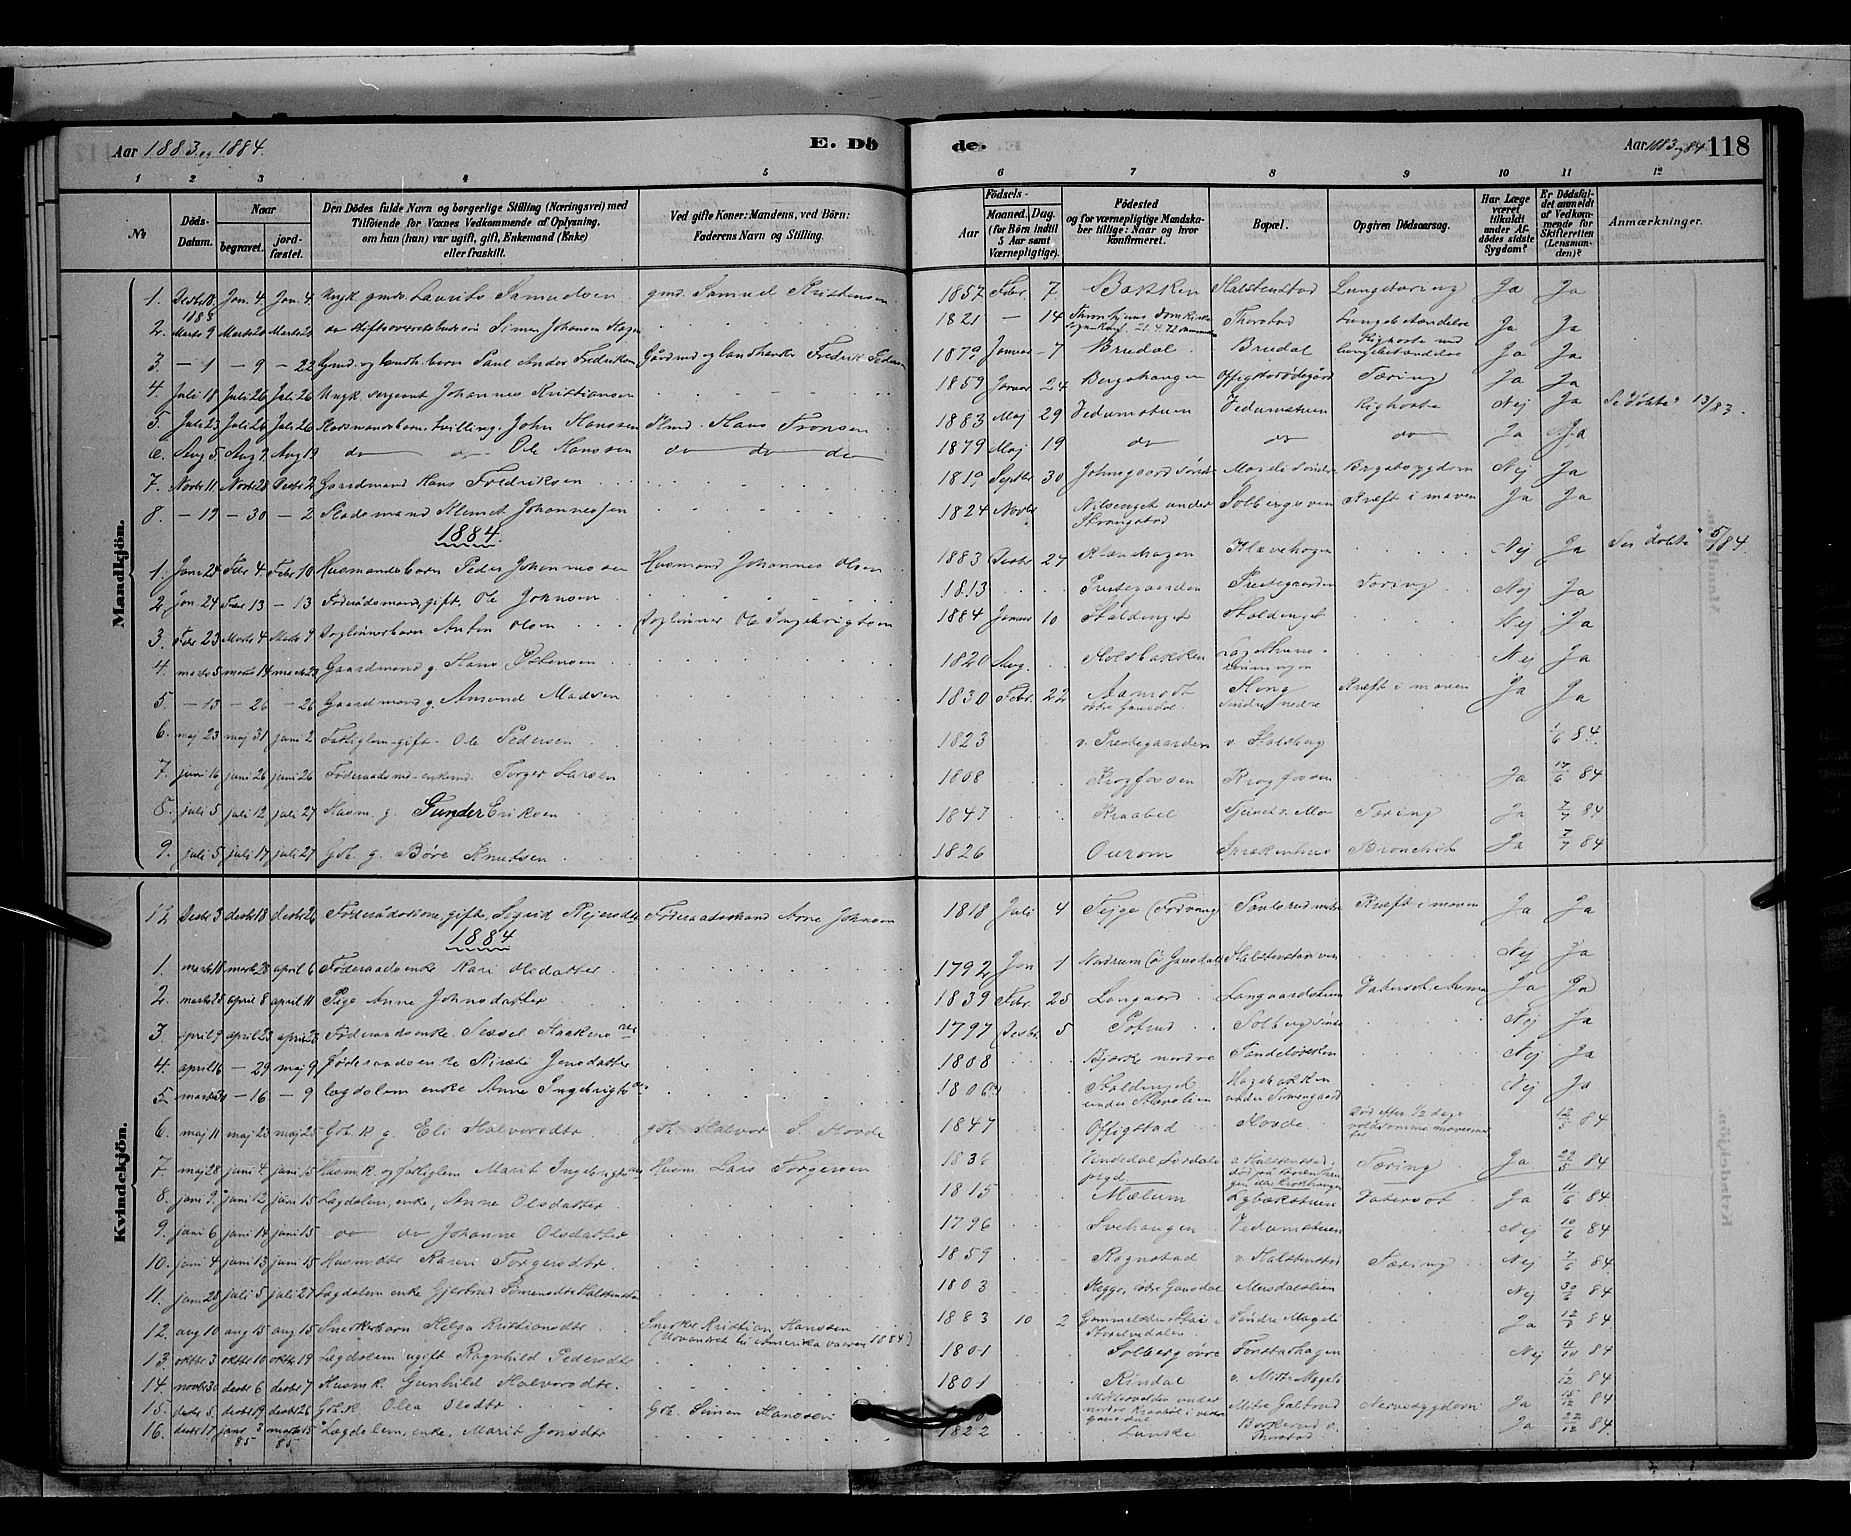 Aar 1883 og 1884.
E. Dö
de.
Aar 1883 og 84
118
1 2 3 4 5 6 7 8 9 10 11 12
№
Döds-Datum.
Naar
begravet.
jord-fæstet.
Den Dödes fulde Navn og borgerlige Stilling (Næringsvei) med Tilföiende för Voxnes Vedkommende af Oplysning, om han (hun) var ugift, gift, Enkemand (Enke) eller fraskilt.
Ved gifte Koner: Mandens, ved Börn: Faderens Navn og Stilling.
Födsels-
Aar
Maaned. Dag.
(for Börn indtil 5 Aar samt Værnepligtige).
Födested og for værnepligtige Mandskaber tillige: Naar og hvor konfirmeret.
Bopæl.
Opgiven Dödsaarsag.
Har Læge været tilkaldt under Afdödes sidste Sygdom?
Er Dödsfaldet anmeldt af Vedkommende for Skifteretten (Lensmanden)?
Anmærkninger.
Mandkjön.
1. Decbr 18. Jan. 4. Jan. 4 Ungk. gmds. Laurits Samuelsen gmd. Samuel Kristensen 1857 Febr. 7 Bakken Halstenstad Lungetæring Ja Ja
1883
2. Marts 9 Marts 20 Marts 20 Simen Johansen 1821 — 14 Thorstad Lungebetændelse Ja Ja
3. — 1 — 9 — 22 Paul Andor Fredriksen Gårdmd og landhandler Fredrik Pedersen 1879 Januar 7 Bruдal Brudal Kighoste med lungebetændelse Ja Ja
4. Juli 18 Juli 26 Juli 26 Ungk. sergeant Johannes Kristiansen 1859 Januar 24 Bergshaugen Offigstad Tæring Ja Ja
5. Juli 23 Juli 26 Juli 26 Pladsmandsbarn, tvilling, John Hanssen Plmd. Hans Tronsen 1883 Maj 29 Vedumstuen Vedumstuen Kighoste Nej Ja Se "døbte" 13/83.
6. Aug 5 Aug 9 Aug 19 do do Ole Hanssen do do do 1879 Maj 19 do do do Ja Ja
7. Novbr 11 Novbr 28 Decbr 2 Gaardmand Hans Fredriksen 1819 Septbr 30 Johnsgaard søndre Magele søndre Brystsygdom Nej Ja
8. — 19 — 30 — 2 Pladsmand Klemet Johannessen 1824 Novbr Nilsenget under Strangstad Solbergsven Kræft i maven Ja Ja
1884.
1. Jan. 24 Febr. 4. Febr 10 Husmandsbarn Peder Johannessen Husmand Johannes Olsen 1883 Decbr 27 Klævehagen Klævehagen Nej Ja Se "døbte" 5/84.
2. Jan. 24 Febr 13 — 13 Føderådsmand, gift, Ole Johnsen 1813 Prestegaarden Prestegaarden Tæring Nej Ja
3. Febr 23 Marts 4 Marts 9 Dagleinerbarn Anton Olsen Dagleinner Ole Ingebrigtsen 1884 Januar 10 Staldenget Staldenget Nej Ja
4. marts 5 marts 14 marts 23 Gaardmand g. Hans Ostensen 1820 Aug. Holsbakken Nej Ja
5. — 13 — 26 — 26 Gaardmand g. Amund Madsen 1830 Febr. 22 Aamodt østre Gausdal Heng Søndre nedre Kræft i maven Ja Ja
6. maj 23 maj 31 juni 2 Fattiglem gift Ole Pedersen 1823 v. Prestegaarden v. Stalsberg 1/6 84.
7. juni 16 juni 26 juni 26 Føderaadsmd. enkemd. Torger Larsen 1808 Krogfossen Krogfossen Ja 17/6 84
8. juli 5 juli 12 juli 27 Husm. g. Gunder Eriksen 1847 Kraabel Tjernet v. Mo Tæring Ja 7/7 84
9. juli 5 juli 17 juli 27 Gbr. g. Børe Knutsen 1826 Ourom Sprækenhus Bronchit Ja 7/7 84
Kvindekjön.
12. Decbr 3 decbr 18 decbr 26 Føderådskone, gift, Sigrid Pejersdtr Føderaadsmand Arne Johnsen 1818 Juli 4 Tejge (Fodvang) Paulsrud nedre Kræft i maven Ja Ja
1884
1. marts 18 marts 28 april 6 Føderaadsenke Kari Olsdatter 1792 Jan 1 Nordrum (ø Gausdal) Halstenstadsven Nej Ja
2. marts 25 april 8 april 11 Pige Anne Johnsdatter 1839 Febr. 25 Langaard Langaardstuen Vatersot Ja Ja
3. april 9 april 23 april 23 Føderaadsenke Sessel Haakensdtr 1797 Decbr 5 Potrud Solberg søndre Nej Ja
4. april 16 — 29 maj 9 Føderaadsenke Kirsti Jensdatter 1808 Bjerke nordre Sandeløkken Nej Ja
5. — 16 — 9 Lægdslem enke Anne Ingebrigtsdtr 1806 Staldenget under Hagebakken under Simengaard Nej Ja
6. maj 11 maj 23 maj 25 Gbr. k g. Eli Halvorsdtr gbr. Halvor S. Hovde 1847 Offigstad Hovde Død efter 1/2 dags voldsomme 12/5 84
7. maj 28 juni 4 juni 15 Husm. k. og fattiglem Marit Ingebrigtsdtr Husm. Lars Torgersen 1836 Vindedal Lærdals prgd. v. Halstenstad Tæring Ja 29/5 84
8. juni 9 juni 12 juni 15 Lægdslem, enke, Anne Olsdatter 1815 Mælum Lybækstuen Vatersot Ja 11/6 84
9. juni 6 juni 14 juni 15 do do Johanne Olsdatter 1796 Svehaugen Vedumstuen Nej 10/6 84
10. juni 4 juni 13 juni 15 Husmdtr Karen Torgersdtr 1859 Rognstad v. Halstenstad Tæring Nej 7/6 84
11. juni 28 juli 5 juli 27 Lægdslem enke Gjertrud Simensdtr Halstenstad 1803 Skegge, østre Gausdal Mersdalslien Nej 30/6 84
12. aug 10 aug 15 aug 15 Snekkerbarn Helga Kristiansdtr. Snekker Kristian Hanssen (Udvandret til Amerika vaaren 1884) 1883 10 2 Søndre Magele Ja 12/8 84
13. oktbr 3 oktbr 10 oktbr 19 Lægdslem ugift Ragnhild Pedersdtr 1801 Solberg øvre Fonstadhagen Nej 11/10 84
14. novbr 30 decbr 6 decbr 7 Husm k. Gunhild Halvorsdtr. 1801 Rindal v. Midtre Magele 1/12 84
15. decbr 5. decbr 19 decbr 26 Gbr. k. Olea Olsdtr Gbr. Simen Hanssen Midtre Galtrud Nervesygdom Ja 15/12 84
16. decbr 17 jan 3 85 marts 15 85 Lægdslem, enke, Marit Jonsdtr 1822 Lunske Bakkerud v. Thorstad Ja 22/12 84